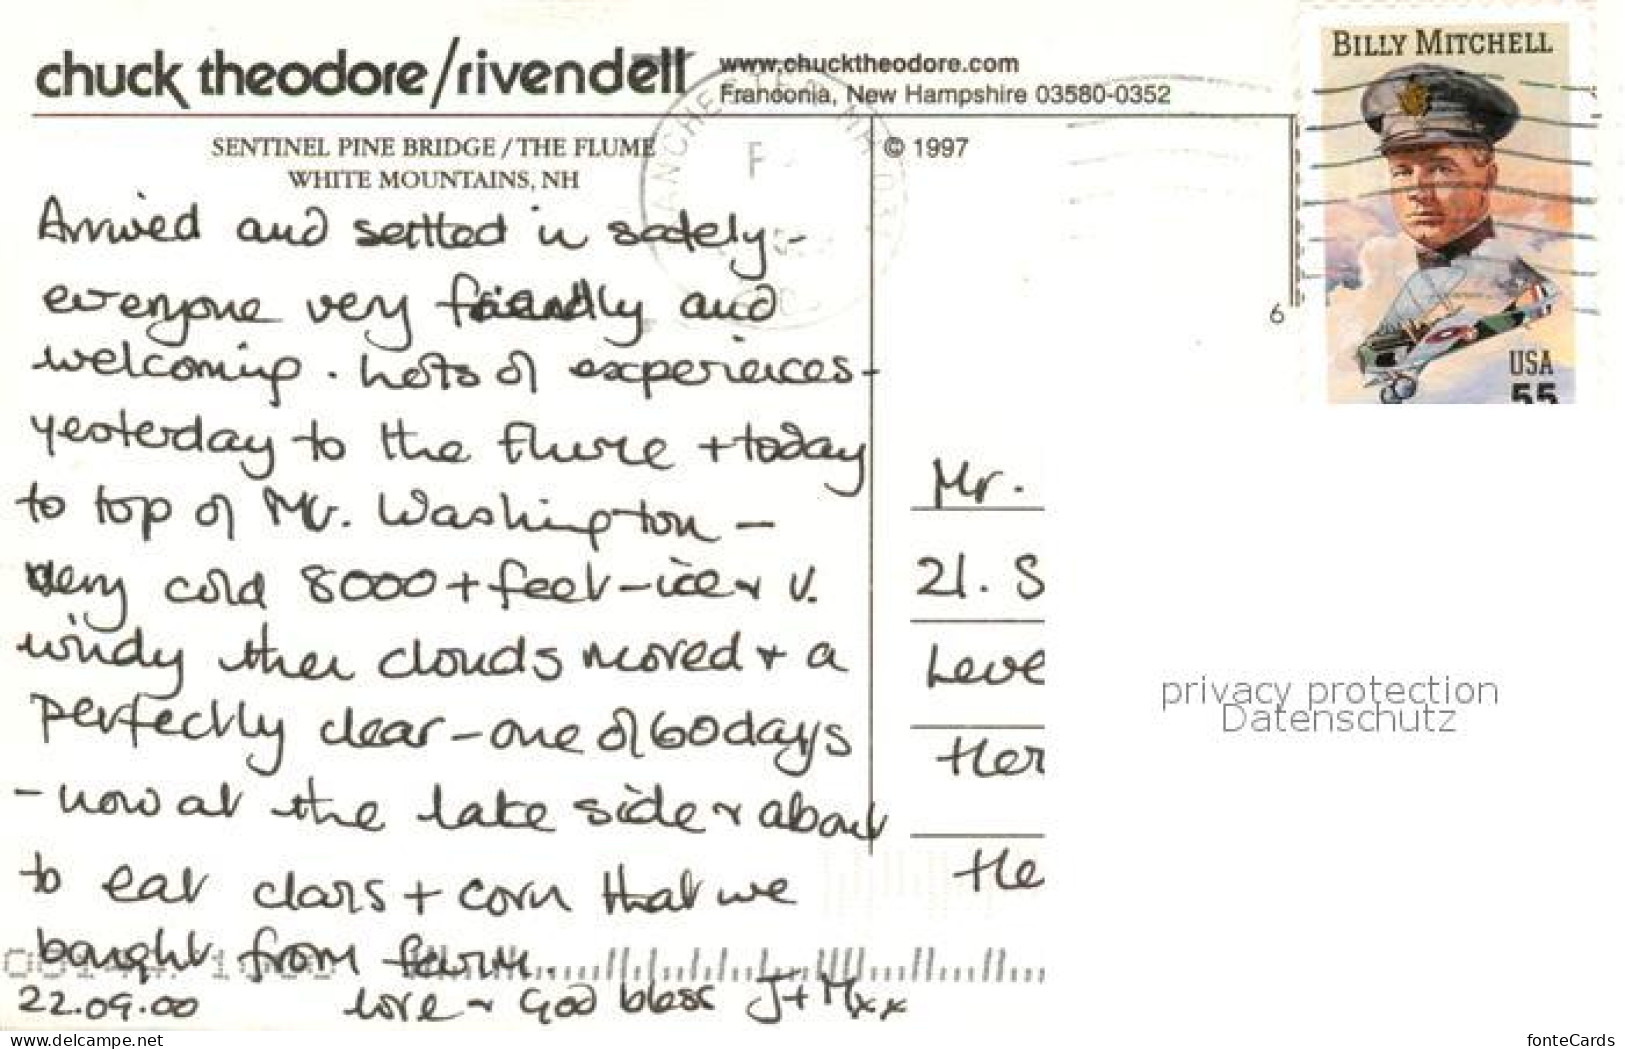 chuck theodore/rivendell
www.chucktheodore.com
Franconia, New Hampshire 03580-0352
BILLY MITCHELL
SENTINEL PINE BRIDGE / THE FLUME
WHITE MOUNTAINS, NH
© 1997
Arrived and settled in safely -
everyone very friendly and
welcoming. Lots of experiences -
yesterday to the Flume + today
to top of Mt. Washington -
very cold 8000+ feet - ice + v.
windy then clouds moved + a
perfectly clear - one of 60 days
- now at the lake side + about
to eat clams + corn that we
bought from farm.
22.09.00 love + God bless J + M xx
6
USA
55
Mr.
21. S
Leve
Her
He
privacy protection
Datenschutz
www.delcampe.net
fonteCards